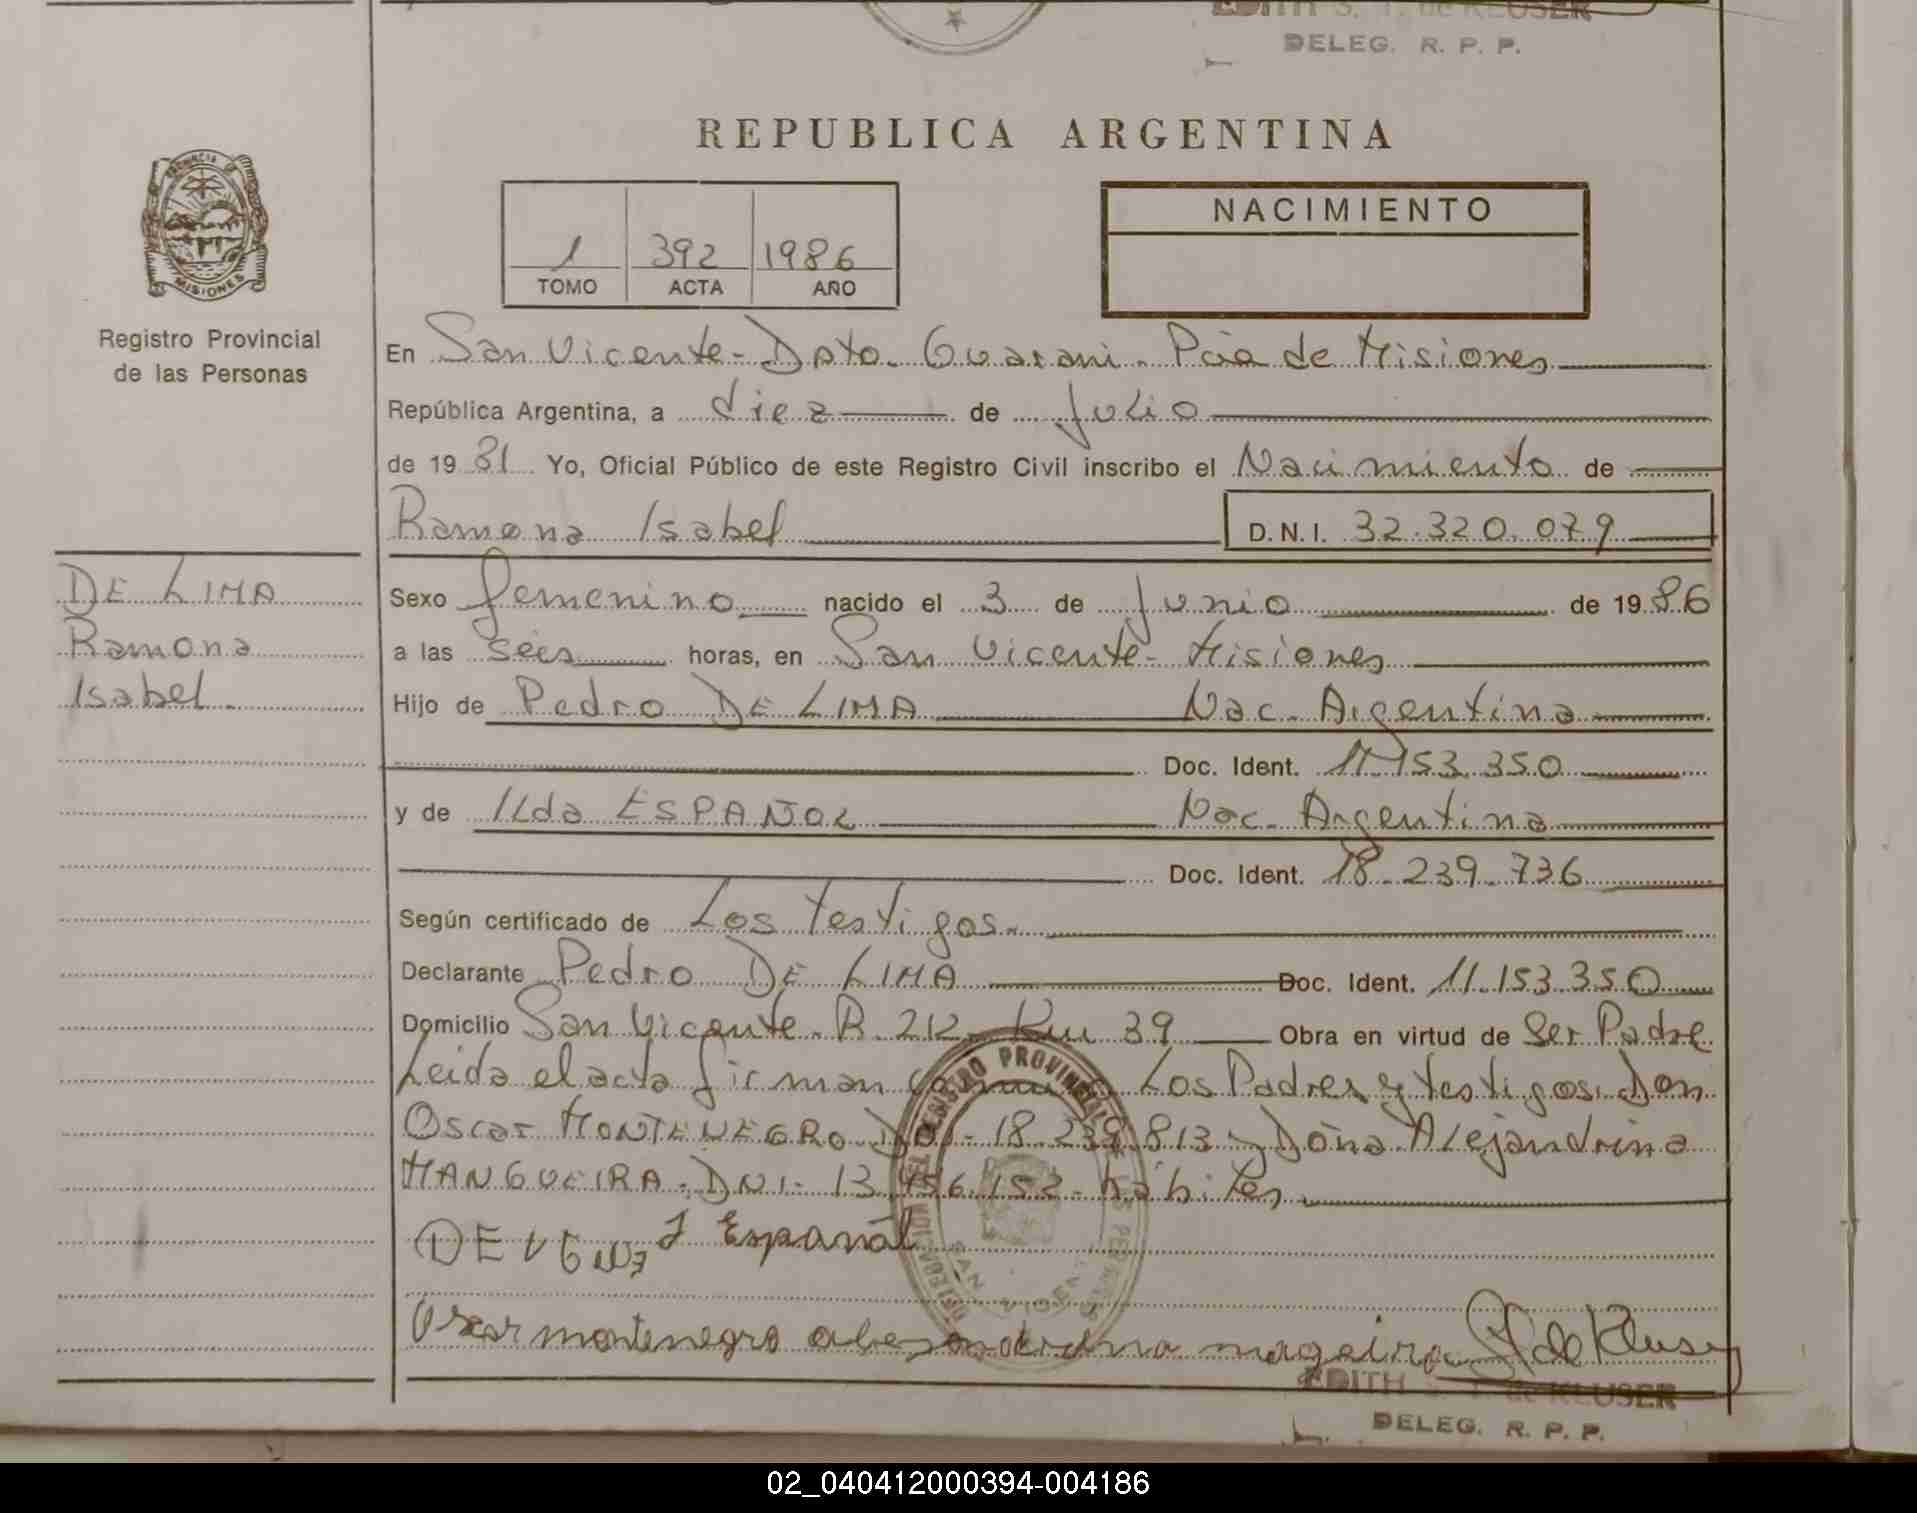 EDITH S. T. de KLUSER
DELEG. R. P. P.
REPUBLICA ARGENTINA
PROVINCIA DE
MISIONES
Registro Provincial
de las Personas
1 392 1986
TOMO ACTA AÑO
NACIMIENTO
En San Vicente - Dpto. Guarani - Pcia de Misiones
República Argentina, a diez de Julio
de 19 81 Yo, Oficial Público de este Registro Civil inscribo el Nacimiento de
Ramona Isabel D.N.I. 32.320.079
DE LIMA
Ramona
Isabel.
Sexo femenino nacido el 3 de Junio de 19 86
a las seis horas, en San Vicente - Misiones
Hijo de Pedro DE LIMA Nac. Argentina
Doc. Ident. 11.153.350
y de Ilda ESPAÑOL Nac. Argentina
Doc. Ident. 18.239.736
Según certificado de Los testigos.
Declarante Pedro DE LIMA Doc. Ident. 11.153.350
Domicilio San Vicente - R. 212 - Km 39 Obra en virtud de Ser Padre
Leida el acta firman Los Padres y testigos Don
Oscar MONTENEGRO DNI - 18.239.813 - Doña Alejandrina
MANGUEIRA - DNI - 13.456.152 - hábiles
I Español
Oscar montenegro mageira S T de Kluser
EDITH S. T. de KLUSER
DELEG. R. P. P.
02_040412000394-004186